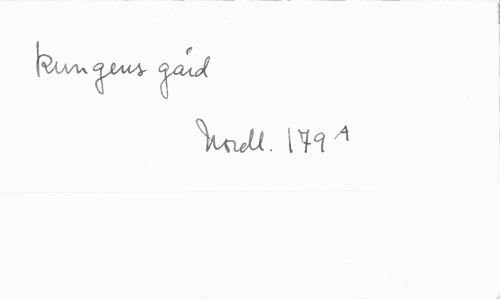 kungens gård
Nordl. 179 A